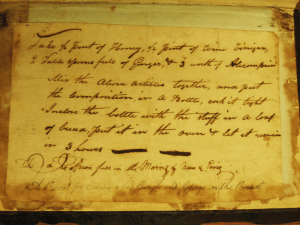 Take ½ pint of Honey, ½ pint of wine Vinigar,
2 Table spoons fulls of Ginger, & 3 worth of
Mix the Above articles together, and put
the Composition in A Bottle, cork it tight
Inclose the bottle with the stuff in a loaf
of bread, put it in the oven & let it remain
in 3 hours
a Tea Spoon full in the Morng & Noon & Eving
A for &